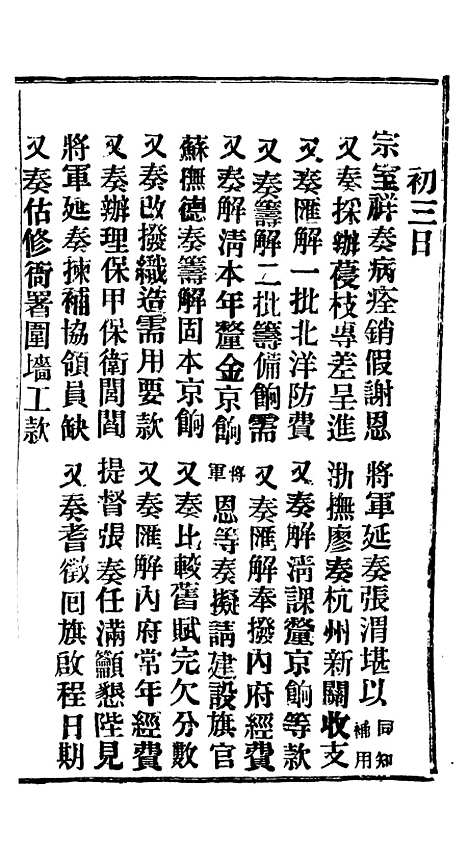 初三日
宗室祥奏病痊銷假謝恩
又奏採辦葠枝專差呈進
又奏匯解一批北洋防費
又奏籌解二批籌備餉需
又奏解清本年釐金京餉
蘇撫德奏籌解固本京餉
又奏改撥織造需用要款
又奏辦理保甲保衛閭閻
將軍延奏揀補協領員缺
又奏估修衙署圍墻工款
將軍延奏張渭堪以同知補用
浙撫廖奏杭州新關收支
又奏解清課釐京餉等款
又奏匯解奉撥內府經費
將軍恩等奏擬請建設旗官
又奏比較舊賦完欠分數
又奏匯解內府常年經費
提督張奏任滿籲懇陛見
又奏耆徵回旗啟程日期